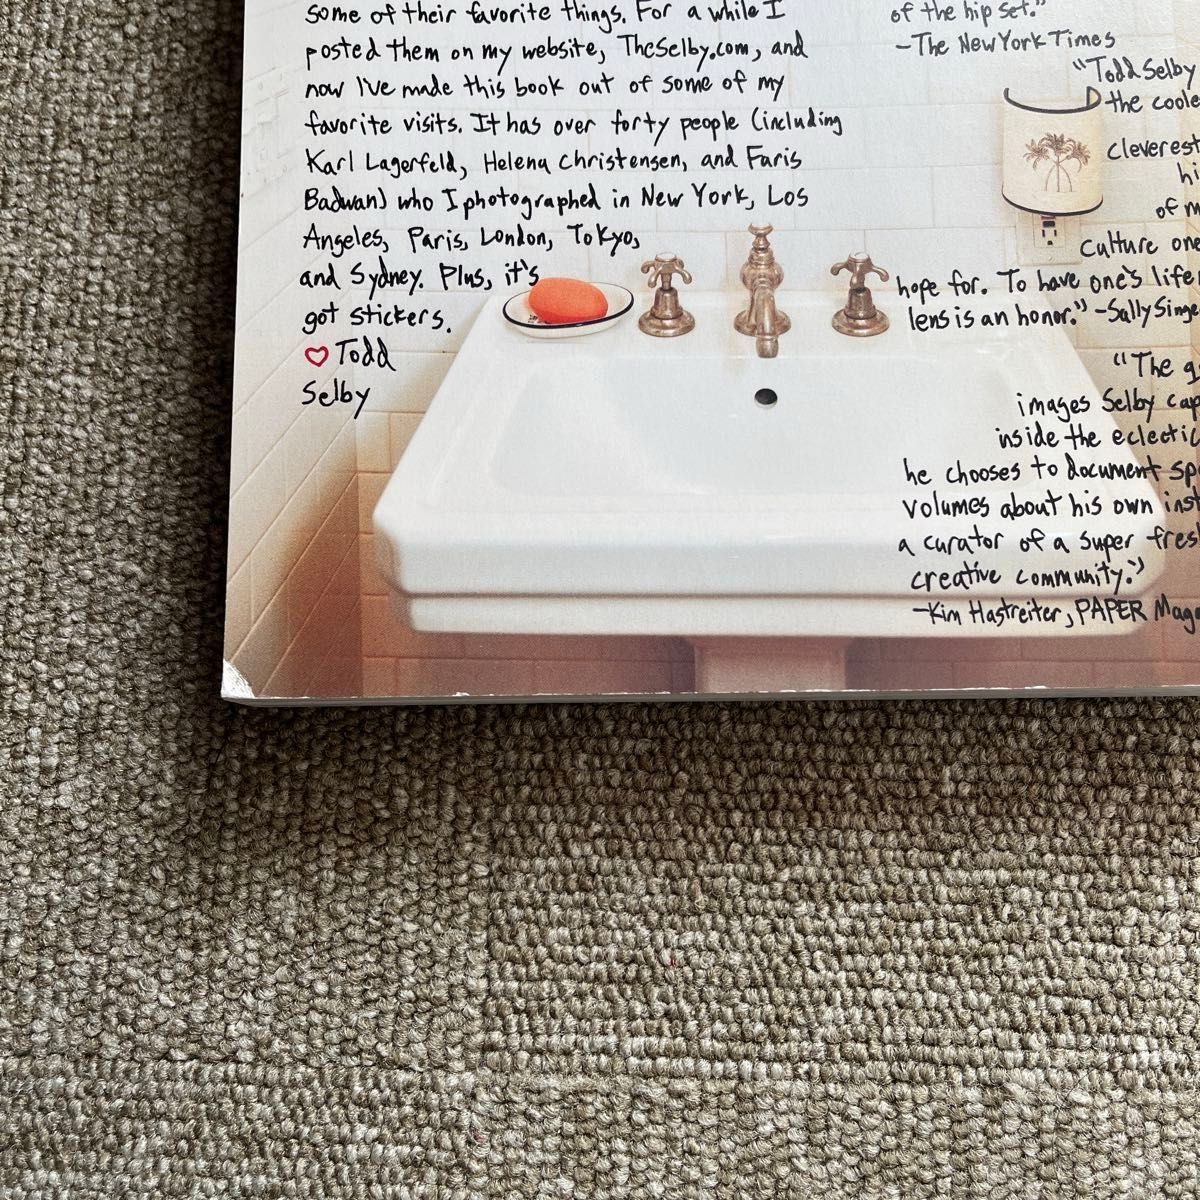 some of their favorite things. For a while I
posted them on my website, TheSelby.com, and
now I've made this book out of some of my
favorite visits. It has over forty people (including
Karl Lagerfeld, Helena Christensen, and Faris
Badwan) who I photographed in New York, Los
Angeles, Paris, London, Tokyo,
and Sydney. Plus, it's
got stickers.
♡ Todd
Selby
of the hip set."
-The New York Times
"Todd Selby
the coole
cleverest
hi
of m
culture one
hope for. To have one's life
lens is an honor." -Sally Singe
"The g
images Selby cap
inside the eclectic
he chooses to document sp
volumes about his own inst
a curator of a super fres
creative community."
-Kim Hastreiter, PAPER Maga